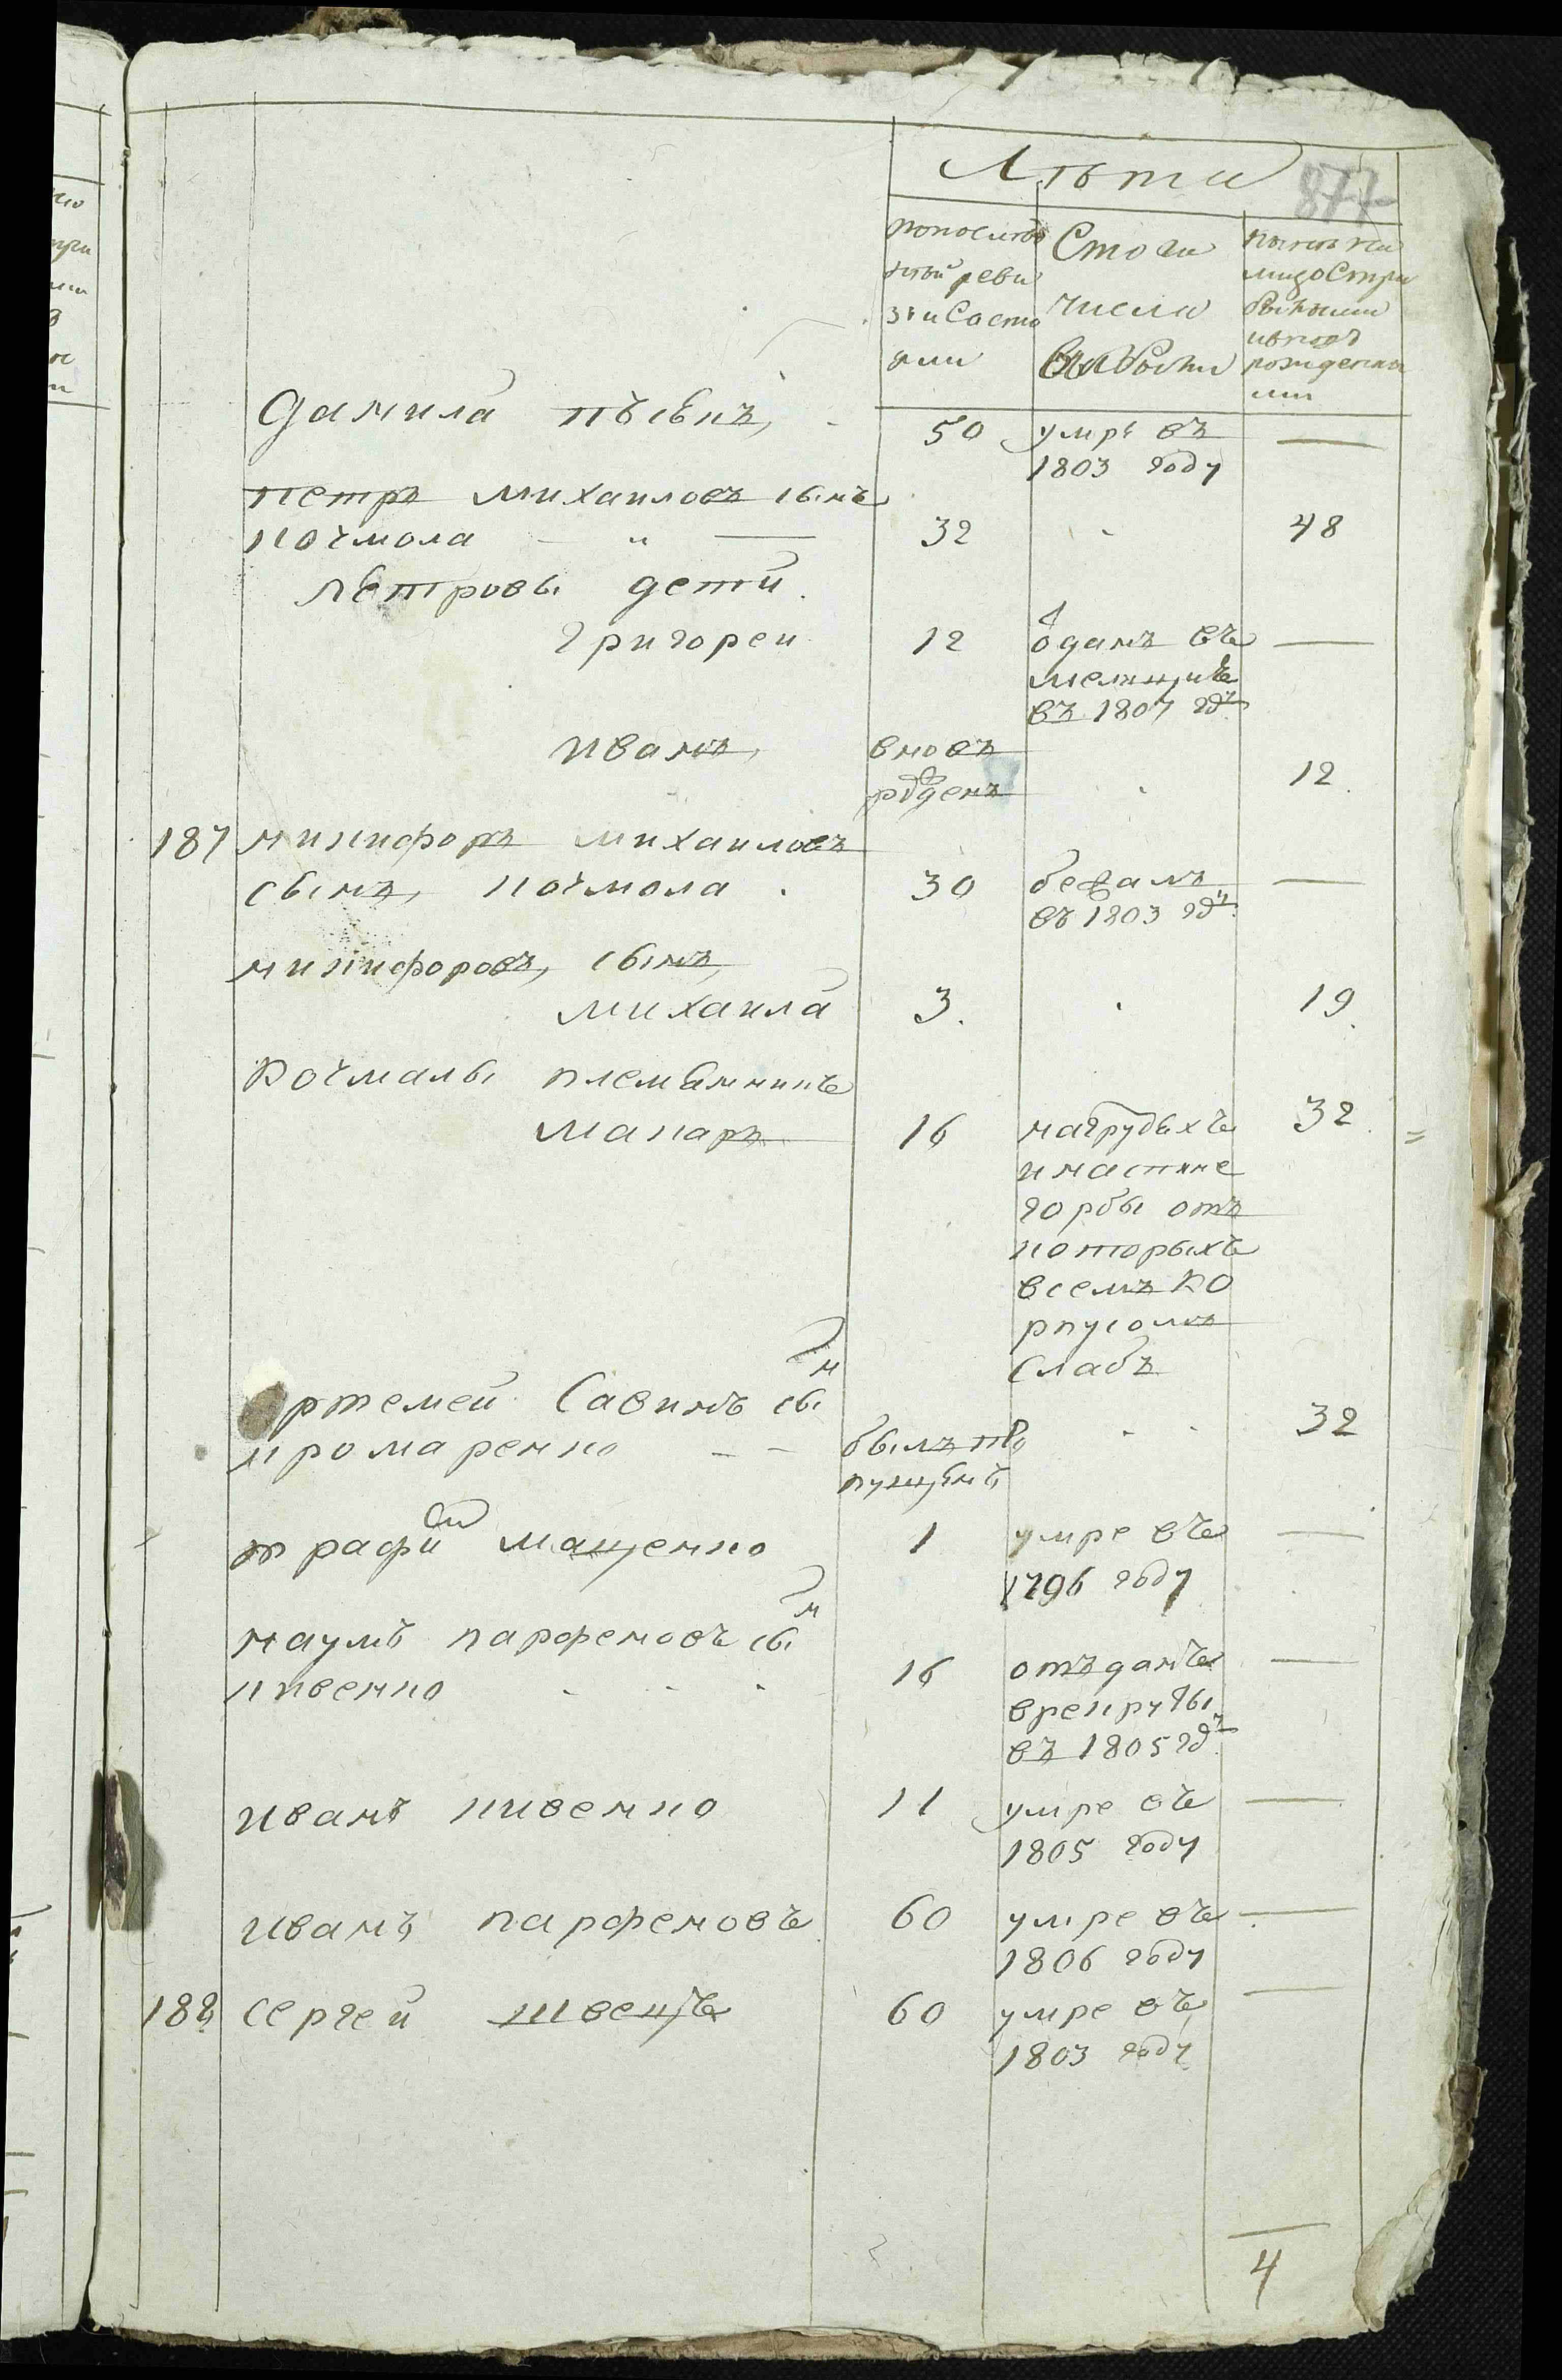 Лѣта
877
попослѣд
ней реви
зiи Состо
яли
Стого
числа
Выбыли
нынѣ на
лицо Стри
былыми
ивновь
рожденны
ми
данила
50
умрѣ въ
—
1803 году
петръ михаиловъ сынъ
кочмола — " —
32
48
Петровы дети
григореи
12
ѿданъ въ
—
мелицiю
въ 1807 гду
иванъ
вновъ
рожденъ
12
187 никифоръ михаиловъ
сынъ кочмола
30
бежалъ
—
въ 1803 гду
никифоровъ сынъ
михаила
3
19
Кочмалы племянникъ
макаръ
16
нагрудяхъ
32
инаспине
горбы отъ
которыхъ
всемъ ко
рпусомъ
Слабъ
Артемей Савинъ сын
крамаренко — —
былъ про
32
пущенъ
трафим мащенко
1
умре въ
—
1796 году
наумъ парфеновъ сын
кивенко
16
отъданъ
—
врекруты
въ 1805 гду
иванъ кивенко
11
умре въ
—
1805 году
иванъ парфеновъ
60
умре въ
—
1806 году
188 сергей швецъ
60
умре въ
—
1803 году
4